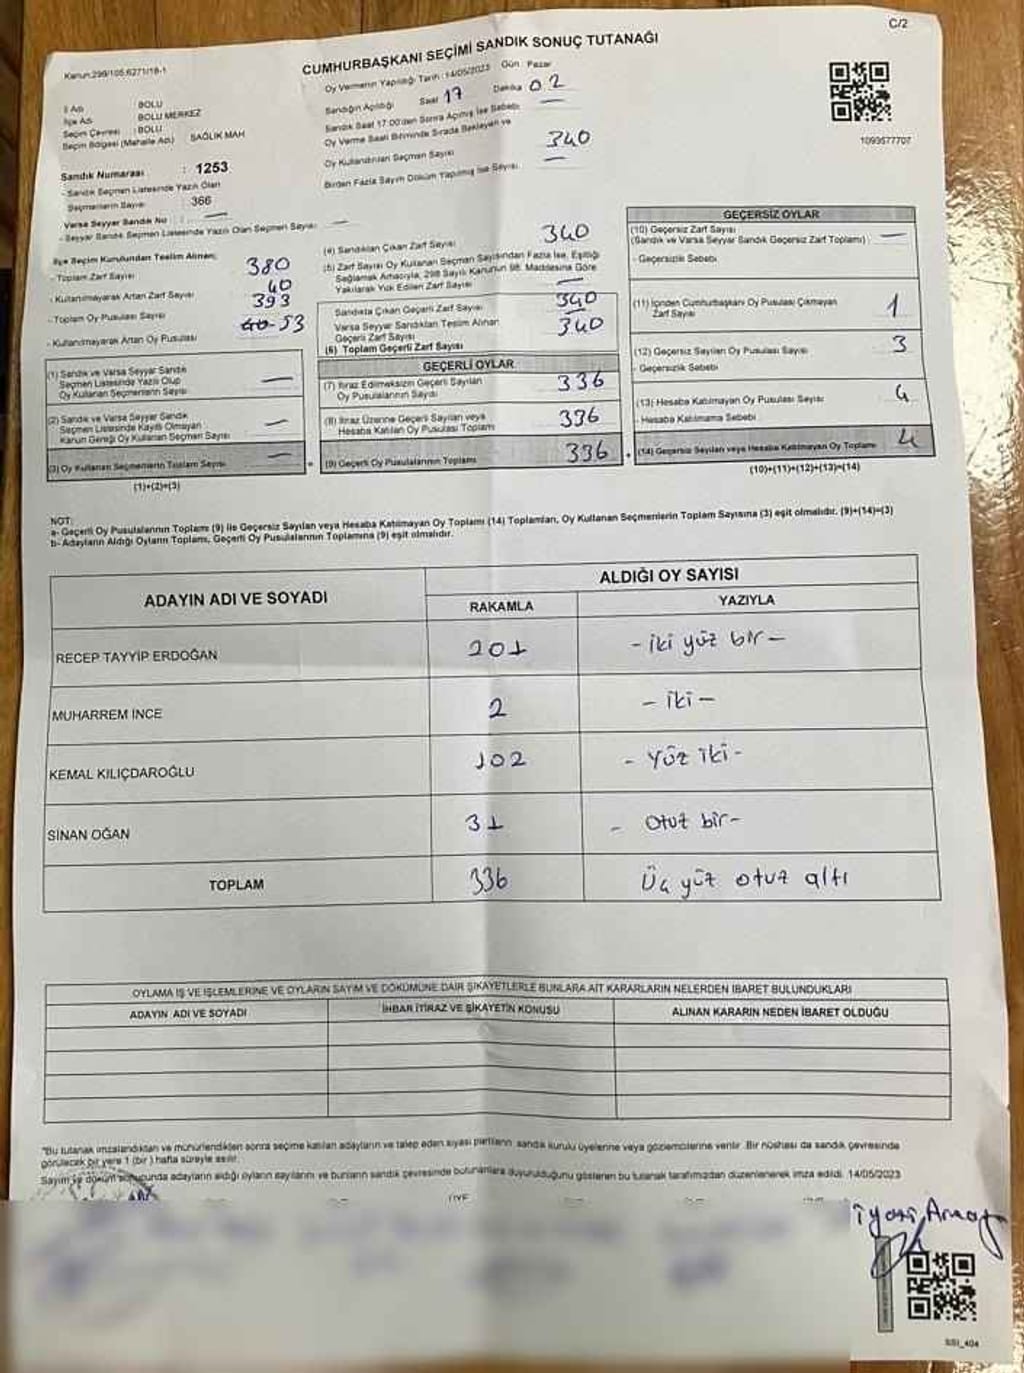 C/2
Kanun:299/105.6271/18-1
CUMHURBAŞKANI SEÇİMİ SANDIK SONUÇ TUTANAĞI
Oy Vermenin Yapıldığı Tarih :14/05/2023 Gün : Pazar
İl Adı : BOLU
İlçe Adı : BOLU MERKEZ
Seçim Çevresi : BOLU
Seçim Bölgesi (Mahalle Adı) SAĞLIK MAH
Sandık Numarası : 1253
- Sandık Seçmen Listesinde Yazılı Olan
Seçmenlerin Sayısı : 366
Varsa Seyyar Sandık No : —
- Seyyar Sandık Seçmen Listesinde Yazılı Olan Seçmen Sayısı —
Sandığın Açıldığı Saat 17 Dakika 02
Sandık Saat 17:00'den Sonra Açılmış İse Sebebi —
Oy Verme Saati Bitiminde Sırada Bekleyen ve
Oy Kullandırılan Seçmen Sayısı 340
Birden Fazla Sayım Döküm Yapılmış İse Sayısı —
1093577707
İlçe Seçim Kurulundan Teslim Alınan;
- Toplam Zarf Sayısı 380
- Kullanılmayarak Artan Zarf Sayısı 40
- Toplam Oy Pusulası Sayısı 393
- Kullanılmayarak Artan Oy Pusulası 40 53
(1) Sandık ve Varsa Seyyar Sandık
Seçmen Listesinde Yazılı Olup
Oy Kullanan Seçmenlerin Sayısı —
(2) Sandık ve Varsa Seyyar Sandık
Seçmen Listesinde Kayıtlı Olmayan
Kanun Gereği Oy Kullanan Seçmen Sayısı —
(3) Oy Kullanan Seçmenlerin Toplam Sayısı —
(1)+(2)=(3)
(4) Sandıktan Çıkan Zarf Sayısı 340
(5) Zarf Sayısı Oy Kullanan Seçmen Sayısından Fazla İse, Eşitliği
Sağlamak Amacıyla, 298 Sayılı Kanunun 98. Maddesine Göre
Yakılarak Yok Edilen Zarf Sayısı —
Sandıkta Çıkan Geçerli Zarf Sayısı 340
Varsa Seyyar Sandıktan Teslim Alınan
Geçerli Zarf Sayısı —
(6) Toplam Geçerli Zarf Sayısı 340
GEÇERLİ OYLAR
(7) İtiraz Edilmeksizin Geçerli Sayılan
Oy Pusulasının Sayısı 336
(8) İtiraz Üzerine Geçerli Sayılan veya
Hesaba Katılan Oy Pusulası Toplamı 336
= (9) Geçerli Oy Pusulalarının Toplamı 336
GEÇERSİZ OYLAR
(10) Geçersiz Zarf Sayısı
(Sandık ve Varsa Seyyar Sandık Geçersiz Zarf Toplamı) —
- Geçersizlik Sebebi
(11) İçinden Cumhurbaşkanı Oy Pusulası Çıkmayan
Zarf Sayısı 1
(12) Geçersiz Sayılan Oy Pusulası Sayısı 3
- Geçersizlik Sebebi
(13) Hesaba Katılmayan Oy Pusulası Sayısı 4
- Hesaba Katılmama Sebebi
+ (14) Geçersiz Sayılan veya Hesaba Katılmayan Oy Toplamı 4
(10)+(11)+(12)+(13)=(14)
NOT:
a- Geçerli Oy Pusulalarının Toplamı (9) ile Geçersiz Sayılan veya Hesaba Katılmayan Oy Toplamı (14) Toplamları, Oy Kullanan Seçmenlerin Toplam Sayısına (3) eşit olmalıdır. (9)+(14)=(3)
b- Adayların Aldığı Oyların Toplamı, Geçerli Oy Pusulalarının Toplamına (9) eşit olmalıdır.
ADAYIN ADI VE SOYADI ALDIĞI OY SAYISI
RAKAMLA YAZIYLA
RECEP TAYYİP ERDOĞAN 201 - iki yüz bir -
MUHARREM İNCE 2 - iki -
KEMAL KILIÇDAROĞLU 102 - Yüz iki -
SİNAN OĞAN 31 - Otuz bir -
TOPLAM 336 Üç yüz otuz altı
OYLAMA İŞ VE İŞLEMLERİNE VE OYLARIN SAYIM VE DÖKÜMÜNE DAİR ŞİKAYETLERLE BUNLARA AİT KARARLARIN NELERDEN İBARET BULUNDUKLARI
ADAYIN ADI VE SOYADI İHBAR İTİRAZ VE ŞİKAYETİN KONUSU ALINAN KARARIN NEDEN İBARET OLDUĞU
*Bu tutanak imzalandıktan ve mühürlendikten sonra seçime katılan adayların ve talep eden siyasi partilerin sandık kurulu üyelerine veya gözlemcilerine verilir. Bir nüshası da sandık çevresinde
görülecek bir yere 1 (bir) hafta süreyle asılır.
Sayım ve döküm sonucunda adayların aldığı oyların sayılarını ve bunların sandık çevresinde bulunanlara duyurulduğunu gösteren bu tutanak tarafımızdan düzenlenerek imza edildi. 14/05/2023
ÜYE
SSI_404